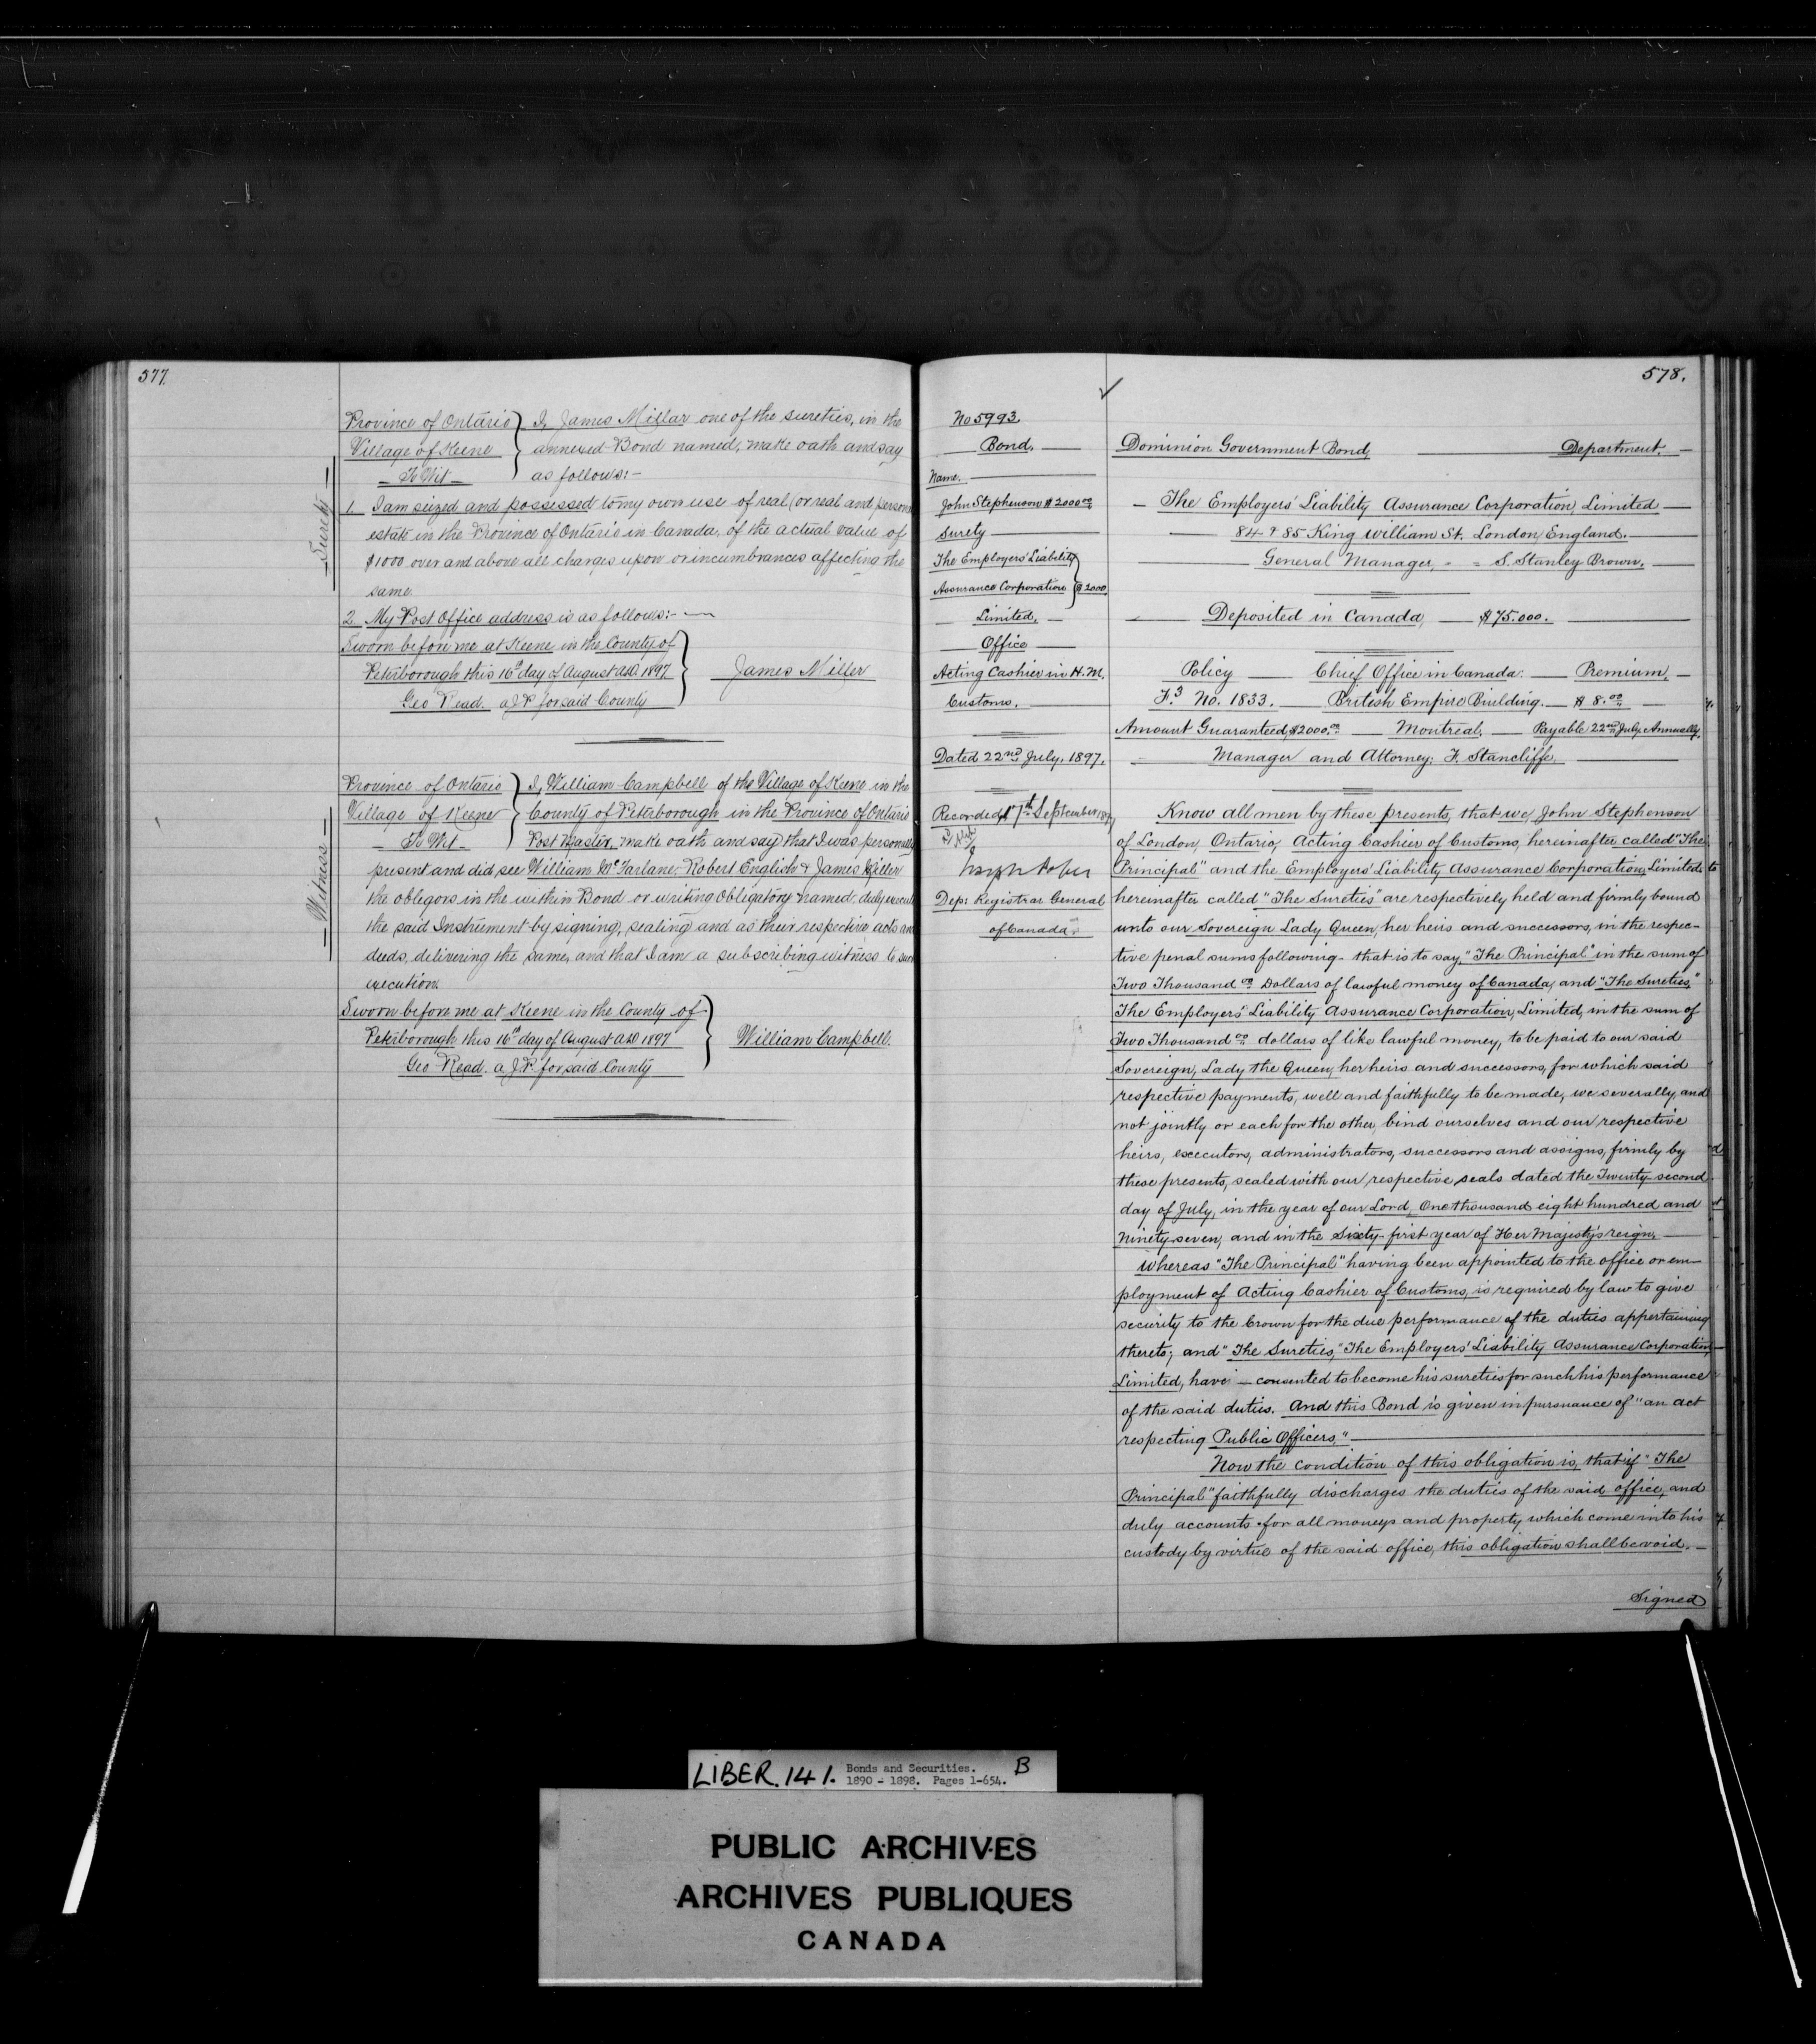 577.
Province of Ontario } I, James Millar one of the sureties, in the
Village of Keene } annexed Bond named, make oath and say
To Wit } as follows:-
Surety
1. I am seized and possessed to my own use of real (or real and personal
estate in the Province of Ontario in Canada, of the actual value of
$1000 over and above all charges upon or incumbrances affecting the
same.
2 My Post Office address is as follows:-
Sworn before me at Keene in the County of
Peterborough this 16th day of August A.D. 1897 } James Miller
Geo Read. a J.P. for said County
Province of Ontario } I, William Campbell of the Village of Keene in the
Village of Keene } County of Peterborough in the Province of Ontario
To Wit } Post Master, make oath and say that I was personally
Witness
present and did see William McFarlane, Robert English & James Miller
the obligors in the within Bond or writing obligatory named, duly execute
the said Instrument by signing, sealing and as their respective acts and
deeds, delivering the same, and that I am a subscribing witness to such
execution.
Sworn before me at Keene in the County of
Peterborough this 16th day of August A.D. 1897 } William Campbell.
Geo Read. a J.P. for said County
578.
No 5993.
Bond.
Name.
John Stephenson $2000.00
Surety
The Employers' Liability
Assurance Corporation } $2000.
Limited,
Office
Acting Cashier in H.M.
Customs.
Dated 22nd July, 1897.
Recorded 7th September 1897
Dep: Registrar General
of Canada
Dominion Government Bond, Department.
The Employers' Liability Assurance Corporation, Limited
84 & 85 King William St. London, England.
General Manager, - = S. Stanley Brown.
Deposited in Canada, $75.000.
Policy Chief Office in Canada: Premium,
F.3 No. 1833. British Empire Building. $8.00
Amount Guaranteed, $2000.00 Montreal, Payable 22nd July, Annually.
Manager and Attorney; F. Stancliffe.
Know all men by these presents, that we, John Stephenson
of London, Ontario, Acting Cashier of Customs, hereinafter called "The
Principal" and the Employers' Liability Assurance Corporation, Limited,
hereinafter called "The Sureties" are respectively held and firmly bound
unto our Sovereign Lady Queen, her heirs and successors, in the respec-
tive penal sums following - that is to say, "The Principal" in the sum of
Two Thousand 00 Dollars of lawful money of Canada, and "The Sureties,"
The Employers' Liability Assurance Corporation, Limited, in the sum of
Two Thousand 00 dollars of like lawful money, to be paid to our said
Sovereign, Lady the Queen, her heirs and successors, for which said
respective payments, well and faithfully to be made, we severally, and
not jointly or each for the other, bind ourselves and our respective
heirs, executors, administrators, successors and assigns, firmly by
these presents, sealed with our respective seals dated the Twenty-second
day of July, in the year of our Lord, One thousand eight hundred and
Ninety-seven, and in the Sixty-first year of Her Majesty's reign.
Whereas "The Principal" having been appointed to the office or em-
ployment of Acting Cashier of Customs, is required by law to give
security to the Crown for the due performance of the duties appertaining
thereto; and "The Sureties," The Employers' Liability Assurance Corporation,
Limited, have - consented to become his sureties for such his performance
of the said duties. And this Bond is given in pursuance of "an act
respecting Public Officers."
Now the condition of this obligation is, that if "The
Principal" faithfully discharges the duties of the said office, and
duly accounts for all moneys and property which come into his
custody by virtue of the said office, this obligation shall be void.
Signed
LIBER. 141. Bonds and Securities. B
1890 - 1898. Pages 1-654.
PUBLIC ARCHIVES
ARCHIVES PUBLIQUES
CANADA